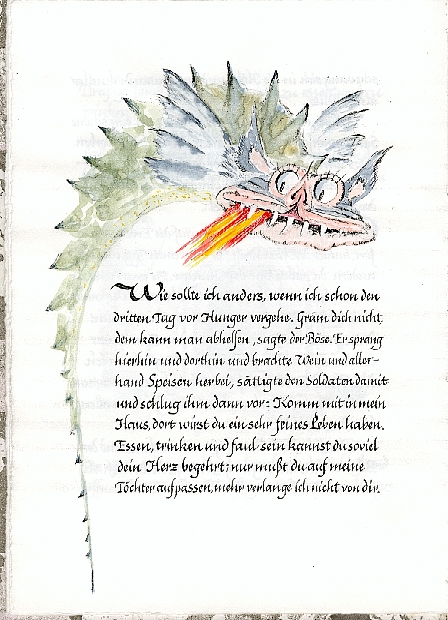 Wie sollte ich anders, wenn ich schon den
dritten Tag vor Hunger vergehe. Gräm dich nicht,
dem kann man abhelfen, sagte der Böse. Er sprang
hierhin und dorthin und brachte Wein und aller-
hand Speisen herbei, sättigte den Soldaten damit
und schlug ihm dann vor: Komm mit in mein
Haus, dort wirst du ein sehr feines Leben haben.
Essen, trinken und faul sein kannst du soviel
dein Herz begehrt; nur mußt du auf meine
Töchter aufpassen, mehr verlange ich nicht von dir.